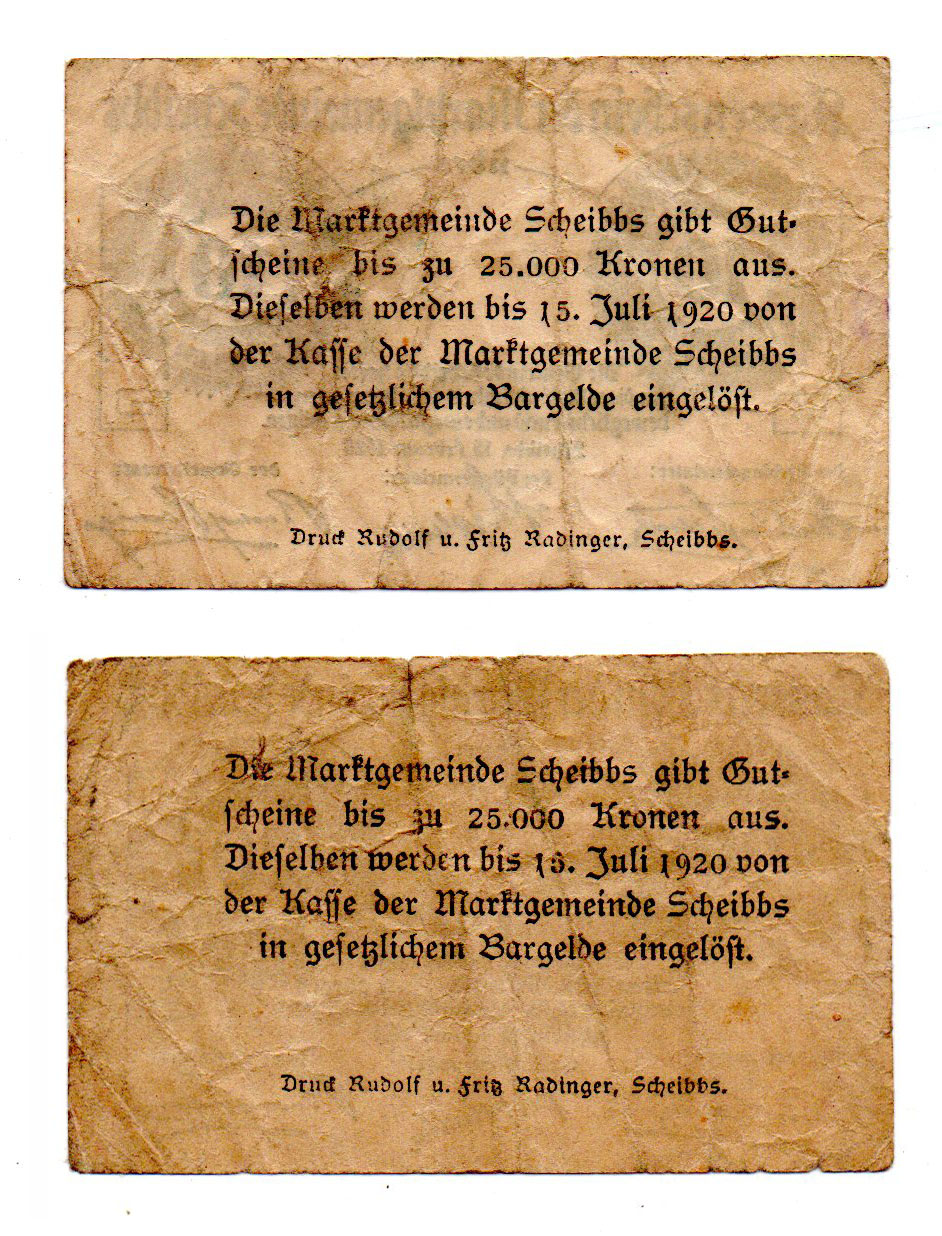 Die Marktgemeinde Scheibbs gibt Gut-
ſcheine bis zu 25.000 Kronen aus.
Dieſelben werden bis 15. Juli 1920 von
der Kaſſe der Marktgemeinde Scheibbs
in geſetzlichem Bargelde eingelöſt.
Druck Rudolf u. Fritz Radinger, Scheibbs.
Die Marktgemeinde Scheibbs gibt Gut-
ſcheine bis zu 25.000 Kronen aus.
Dieſelben werden bis 15. Juli 1920 von
der Kaſſe der Marktgemeinde Scheibbs
in geſetzlichem Bargelde eingelöſt.
Druck Rudolf u. Fritz Radinger, Scheibbs.